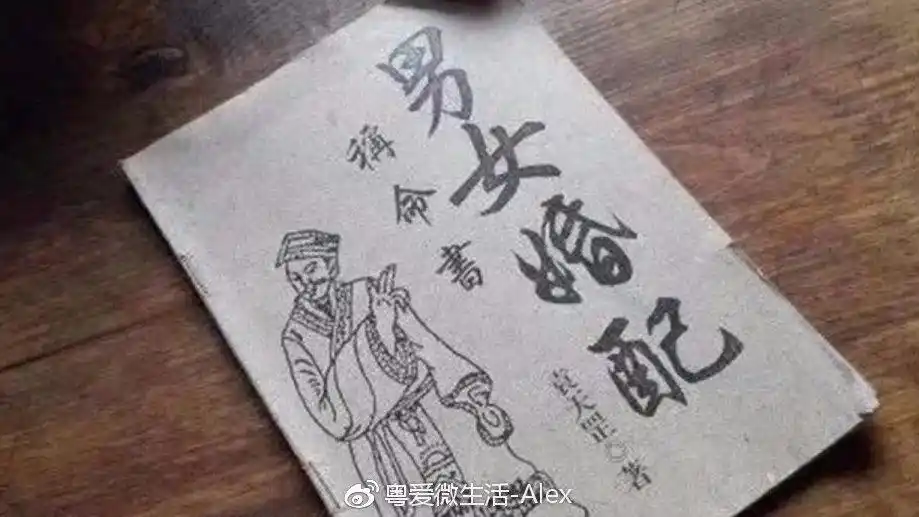 男女婚配
稱命書
袁天罡○著
粤爱微生活-Alex